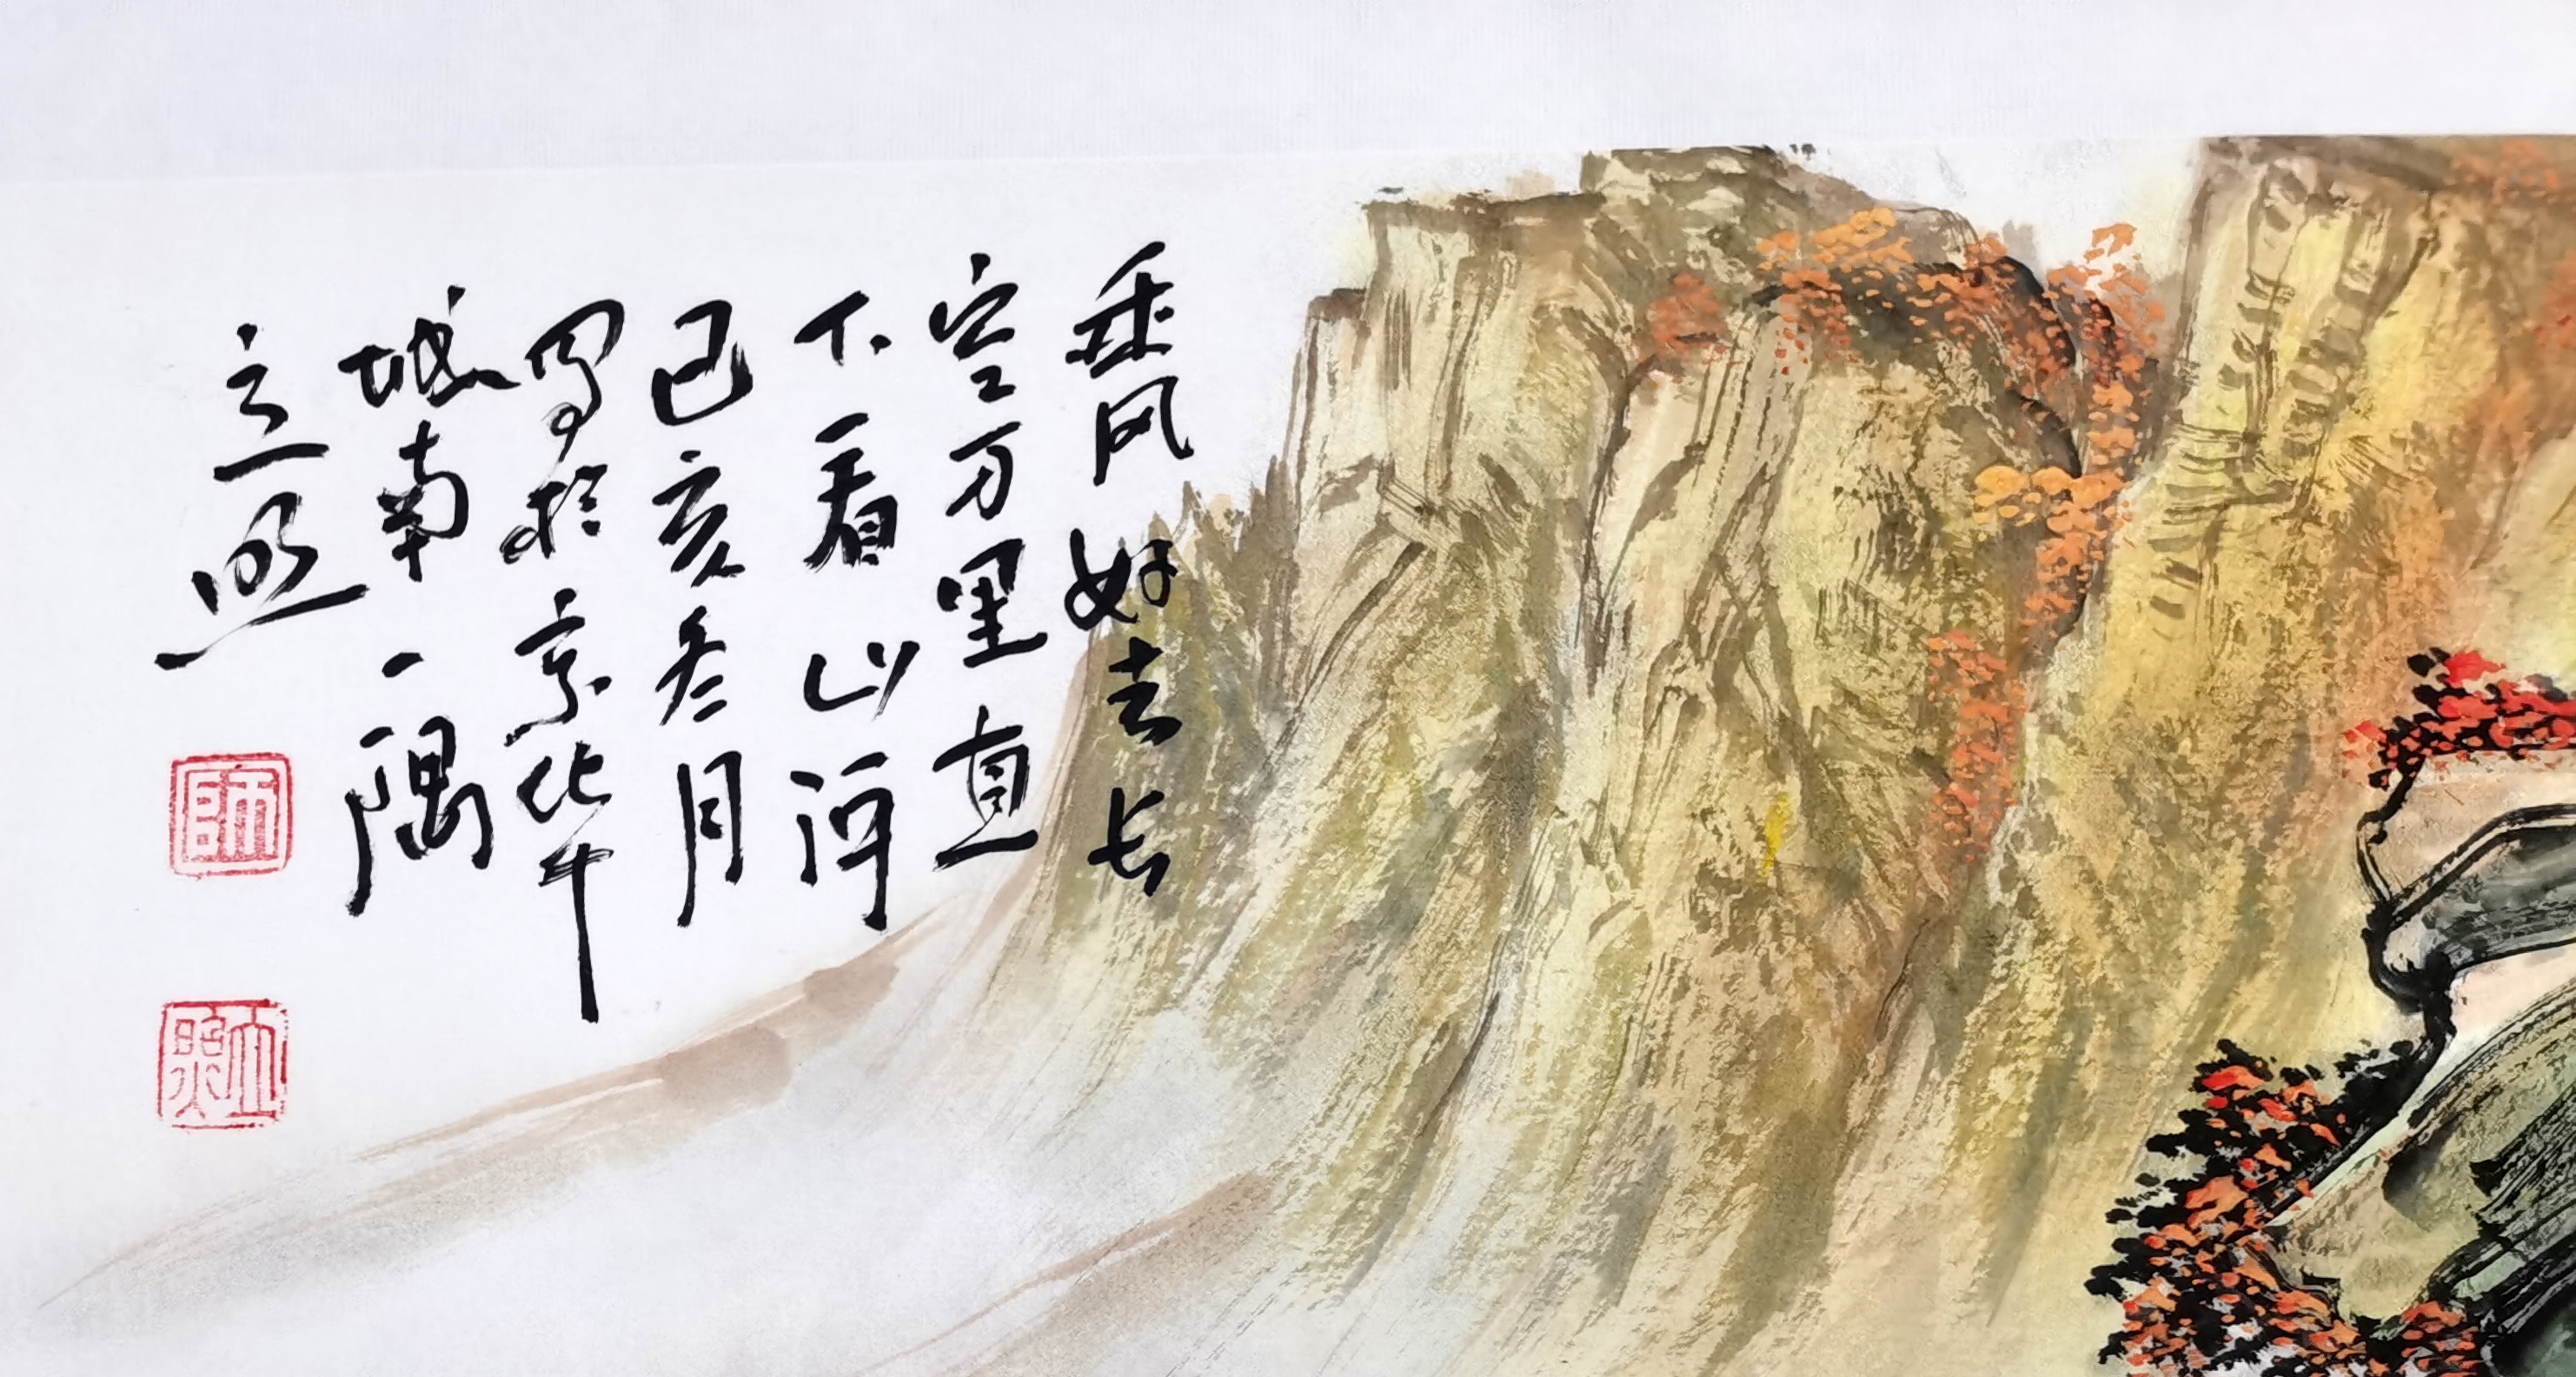 乘风好去长
空万里直
下看山河
己亥冬月
写於京华
城南一隅
立照